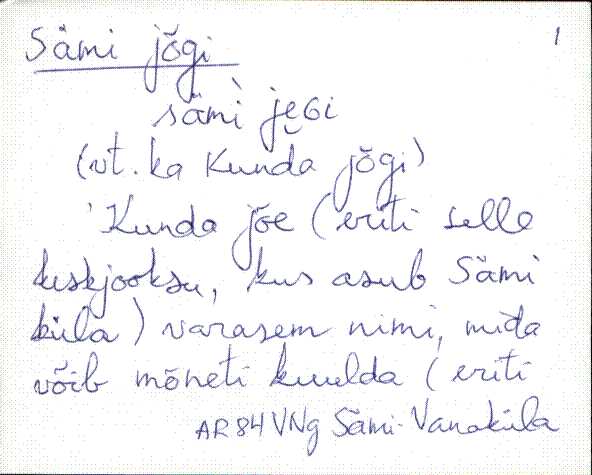 Sämi jõgi 1
sämì je̬ɢi
(vt. ka Kunda jõgi)
Kunda jõe (eriti selle
keskjooksu, kus asub Sämi
küla) varasem nimi, mida
võib mõneti kuulda (eriti
AR 84 VNg Sämi-Vanaküla